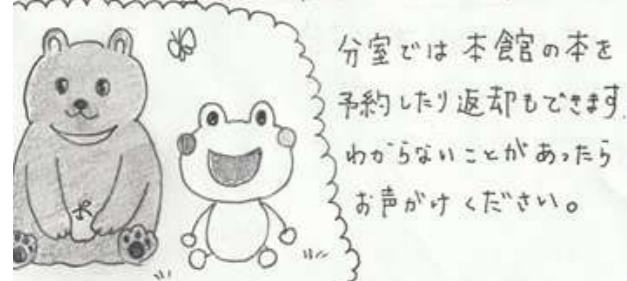 分室では本館の本を
予約したり返却もできます.
わからないことがあったら
お声がけください。